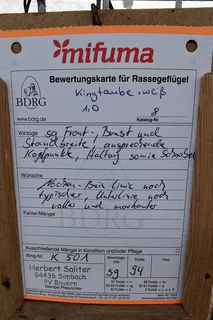 mifuma
Bewertungskarte für Rassegeflügel
BDRG
www.bdrg.de
Kingtaube, weiß
1,0
8
Katalog-Nr.
Vorzüge sg Front-, Brust und
Standbreite, ansprechende
Kopfpunkte, Haltung sowie Schnabel
Wünsche
Nacken-Bein Linie noch
typischer, Unterlinie noch
voller und markanter
Fehler/Mängel
Ausschließende Mängel in Kondition und/oder Pflege
Ring-Nr. K 501
Herbert Saliter
94436 Simbach
PV Bayern
Stempel Preisrichter
sg 94